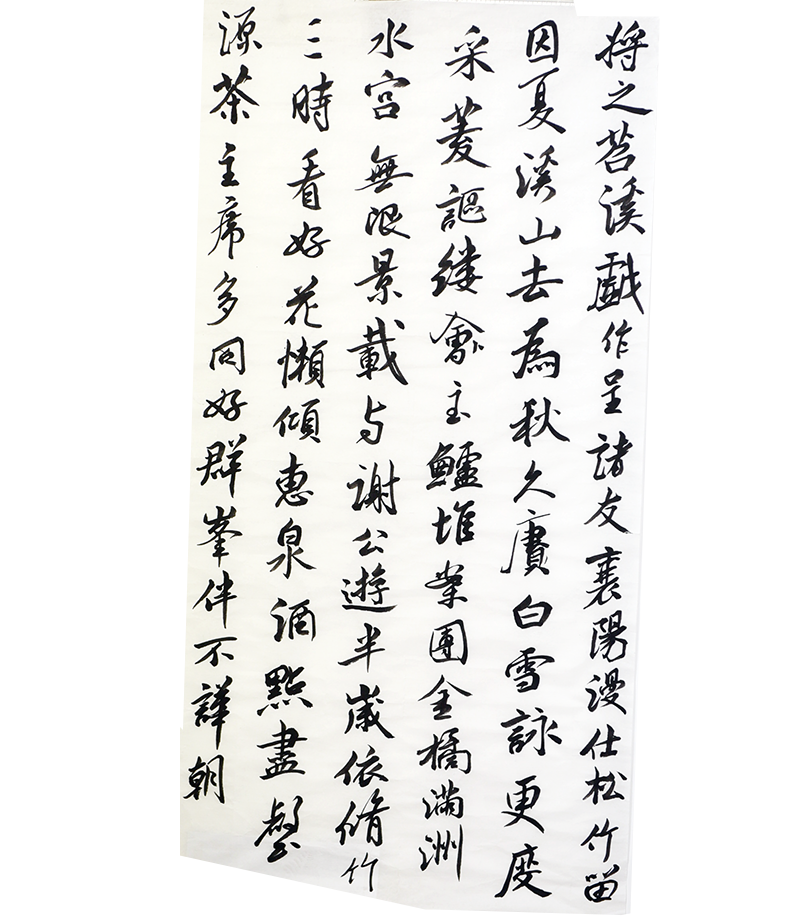 将之苕溪戲作呈諸友襄陽漫仕松竹留
因夏溪山去為秋久賡白雪詠更度
采菱謳縷會玉鱸堆案團金橘滿洲
水宮無限景載与謝公遊半歲依脩竹
三時看好花懶傾惠泉酒點盡壑
源茶主席多同好群峯伴不譁朝